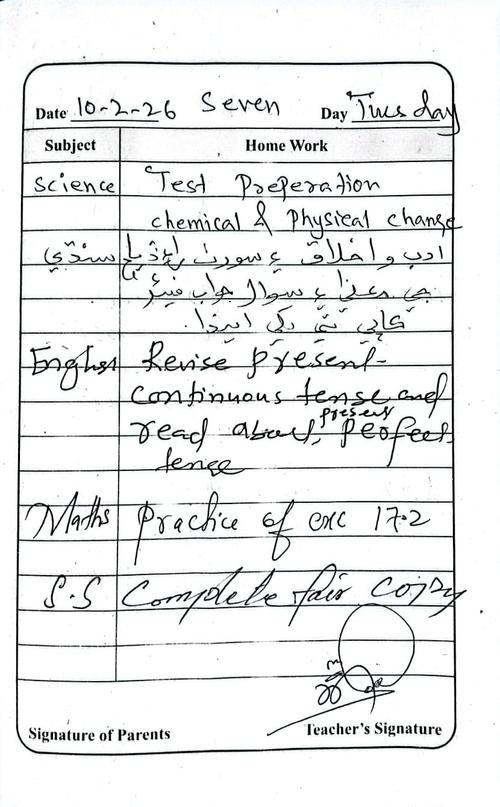 Date 10-2-26 Seven Day Tuesday
Subject Home Work
Science Test Preperation
chemical & Physical change
سنڌي ادب و اخلاق ۽ سورٺ راءِ ڏياچ
جي معنيٰ ۽ سوال جواب فيئر
ڪاپي تي
English Revise present
continuous tense and
read about present perfect
tence
Maths Practice of exc 17.2
S.S Complete fair copy
Signature of Parents Teacher's Signature